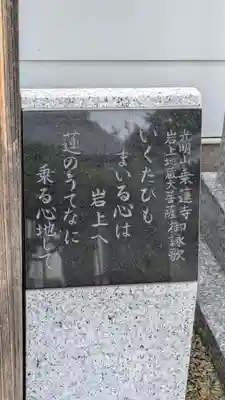 光明山乗蓮寺御詠歌
岩上地蔵大菩薩御詠歌
いくたびも
まいる心は
岩上へ
蓮のうてなに
乗る心地して